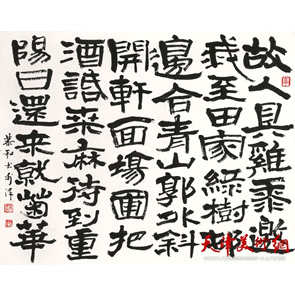 故人具雞黍邀
我至田家綠樹邨
邊合青山郭外斜
開軒面場圃把
酒話桑麻待到重
陽日還來就菊華
天津美术网